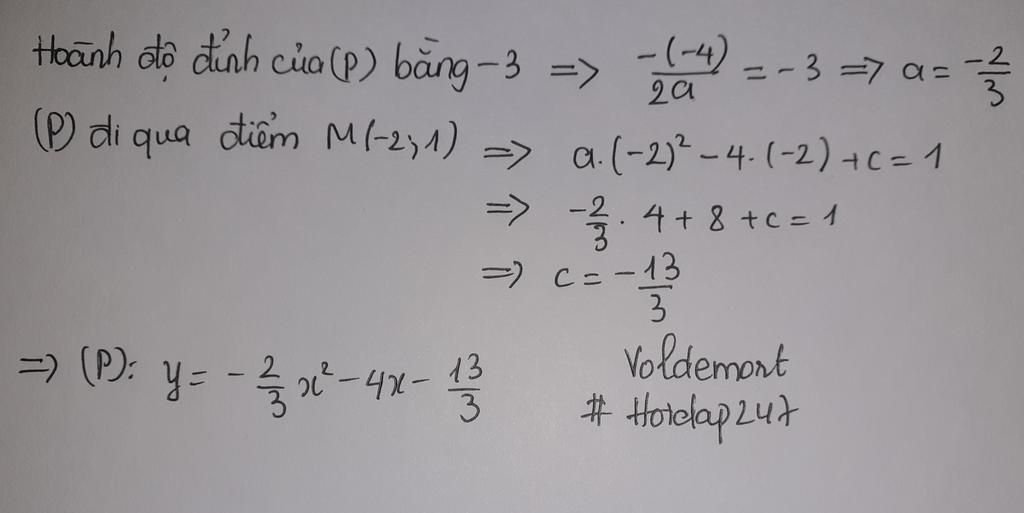 Hoành độ đỉnh của (P) bằng -3 => -(-4)/2a = -3 => a = -2/3
(P) đi qua điểm M(-2;1) => a.(-2)² - 4.(-2) + c = 1
=> -2/3 . 4 + 8 + c = 1
=> c = -13/3
=> (P): y = -2/3 x² - 4x - 13/3
Voldemort
# Hoidap247